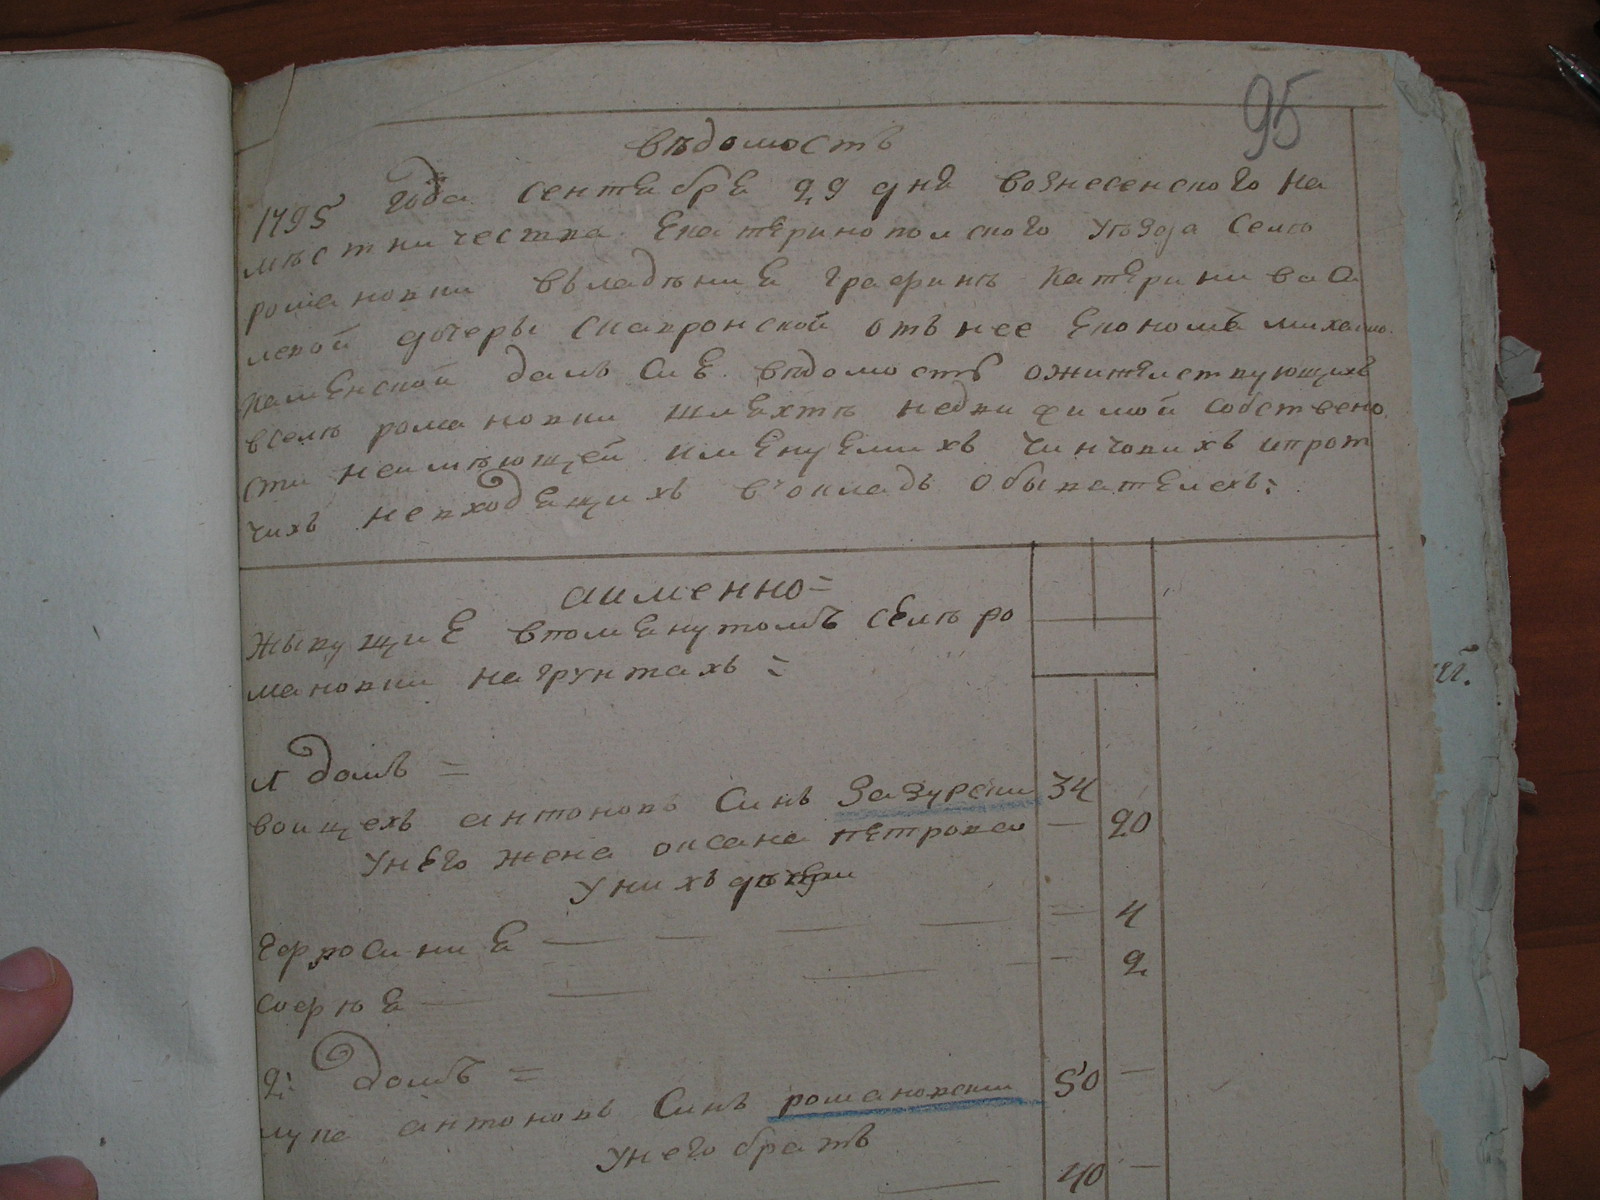 95
вѣдомость
1795 года сентебре 29 дне вознесенского на
мѣстничества Екатеринополского уѣзда селѣ
романовки въладѣние графинѣ катерини васи
левой дочеры скавронской отъ нее Економа михаило
каменской далъ сие ведомость ожителствующихъ
вселѣ романовки шлехтѣ недвижимой собствено
сти неимѣющей именуемихъ чиншовихъ ипрот
чихъ невходещихъ в окладъ обывателехъ:
аименно=
жывущие впоменутомъ селѣ ро
мановки нагрунтахъ =
1 домъ =
воицехъ антоновъ Синъ Зазурски 34
Унего жена оксана петрова — 20
Унихъ дѣтри
Ефросиние — — — — — 4
софѣе — — — — — 2
2: домъ =
лука антоновъ Синъ романовски 50 —
Унего братъ
— 40 —